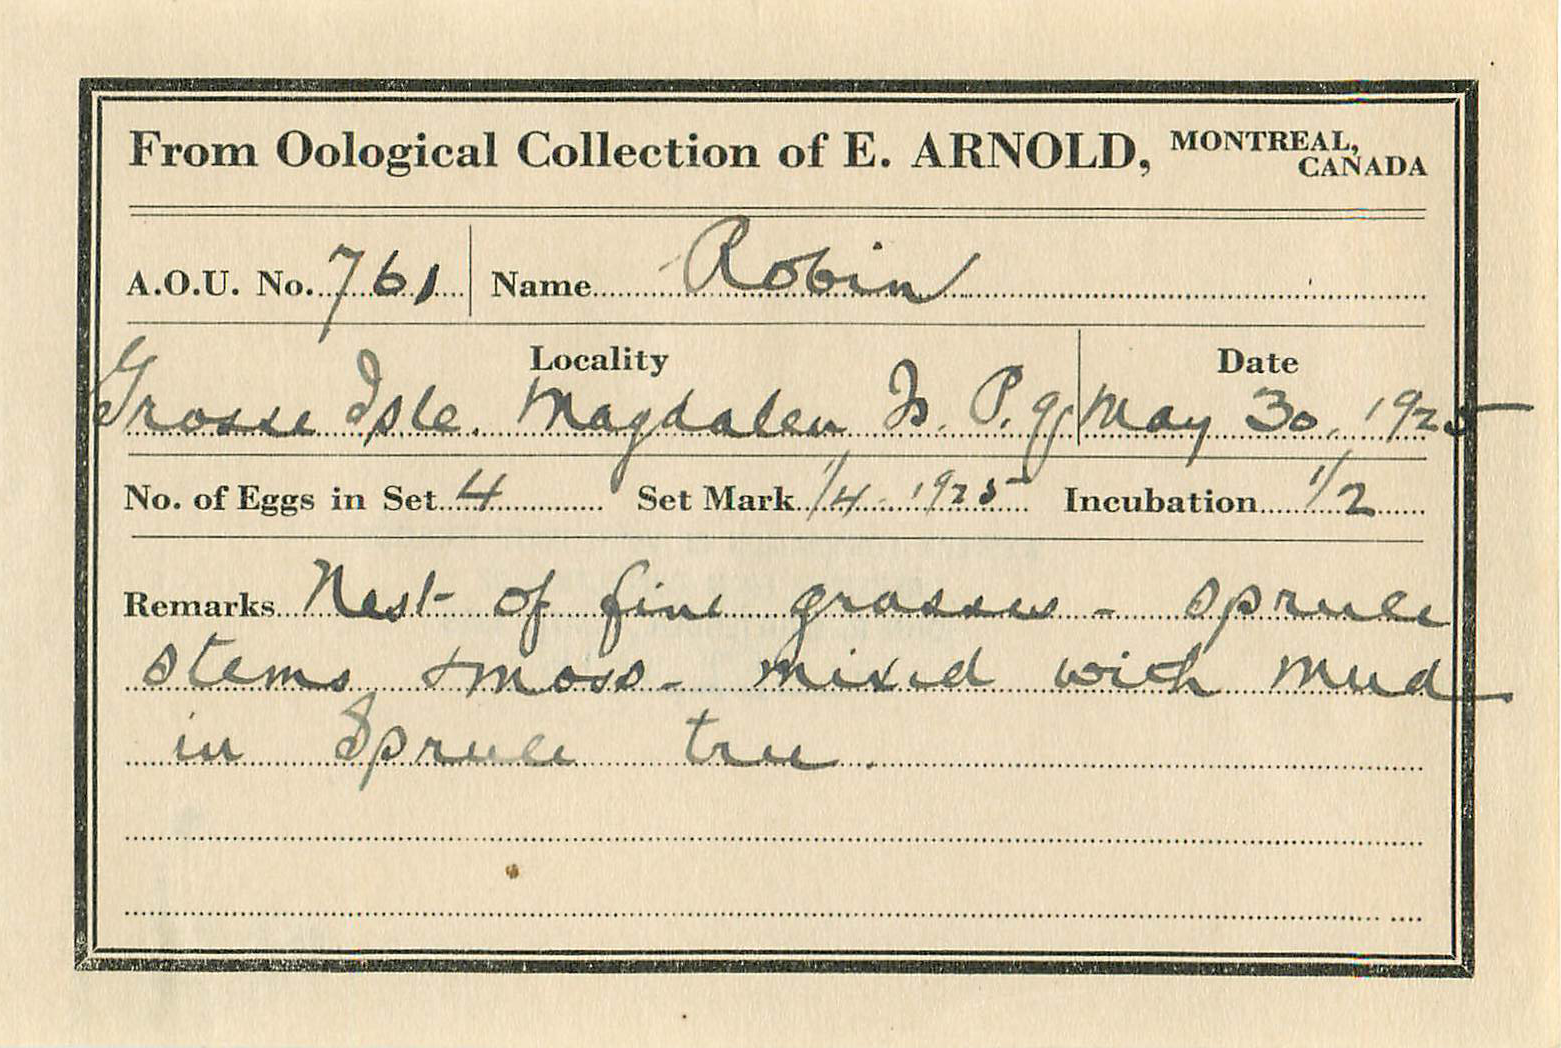 From Oological Collection of E. ARNOLD, MONTREAL, CANADA
A.O.U. No. 761 Name Robin
Locality Date
Grosse Isle. Magdalen Is. P.Q. May 30, 1925
No. of Eggs in Set 4 Set Mark 1/4. 1925 Incubation 1/2
Remarks Nest of fine grasses - spruce
stems & moss - mixed with mud
in Spruce tree.